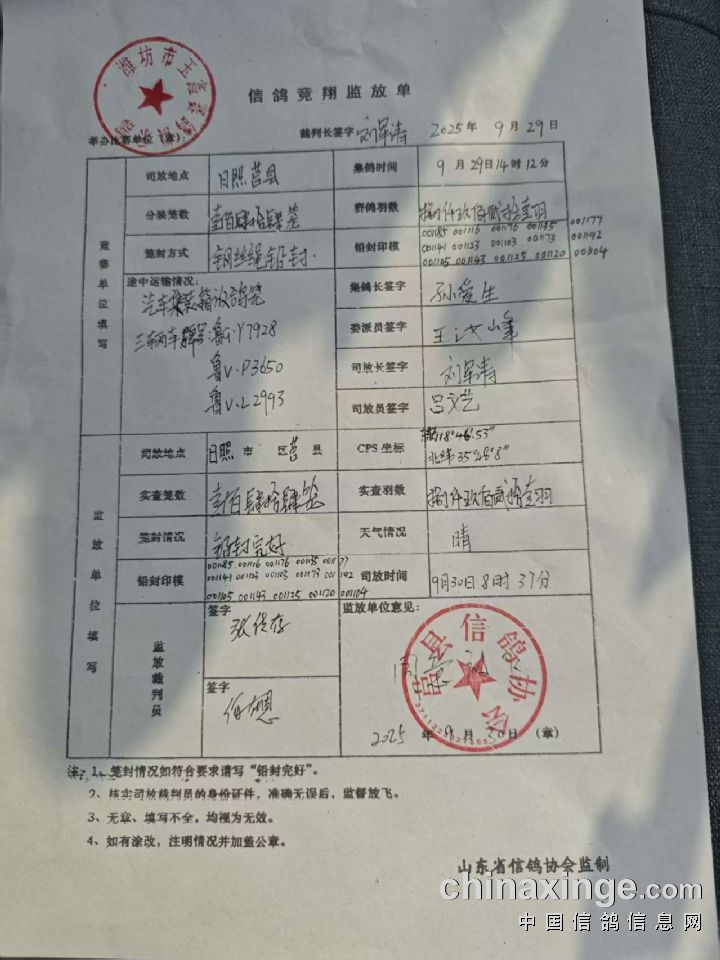 信鸽竞翔监放单
举办比赛单位（章）：
裁判长签字 刘军涛 2025年9月29日
竞赛单位填写
司放地点 日照莒县 集鸽时间 9月29日14时12分
分装笼数 壹佰肆拾肆笼 赛鸽羽数 捌仟玖佰贰拾壹羽
笼封方式 钢丝绳铅封. 铅封印模 001185 001116 001176 001135 001177
001141 001123 001103 001173 001192
001105 001143 001125 001120 001104
途中运输情况: 集鸽长签字 孙爱生
汽车集装箱放鸽笼
委派员签字
三辆车牌号:鲁G·Y7928
司放长签字 刘军涛
鲁V·P3650
鲁V·L2993
司放员签字 吕文艺
监放单位填写
司放地点 日照市 区莒县 CPS坐标 118°46′.53″
北纬35°
实查笼数 壹佰肆拾肆笼 实查羽数 捌仟玖佰贰拾壹羽
笼封情况 铅封完好 天气情况 晴
铅封印模 001185 001116 001176 001135 001177
001141 001123 001103 001173 001192
001105 001143 001125 001120 001104
司放时间 9月30日8时37分
监放裁判员
签字
监放单位意见:
签字
莒县信鸽协会
2025年9月30日（章）
注: 1、笼封情况如符合要求请写“铅封完好”。
2、核实司放裁判员的身份证件，准确无误后，监督放飞。
3、无章、填写不全，均视为无效。
4、如有涂改，注明情况并加盖公章。
山东省信鸽协会监制
chinaxinge.com
中国信鸽信息网